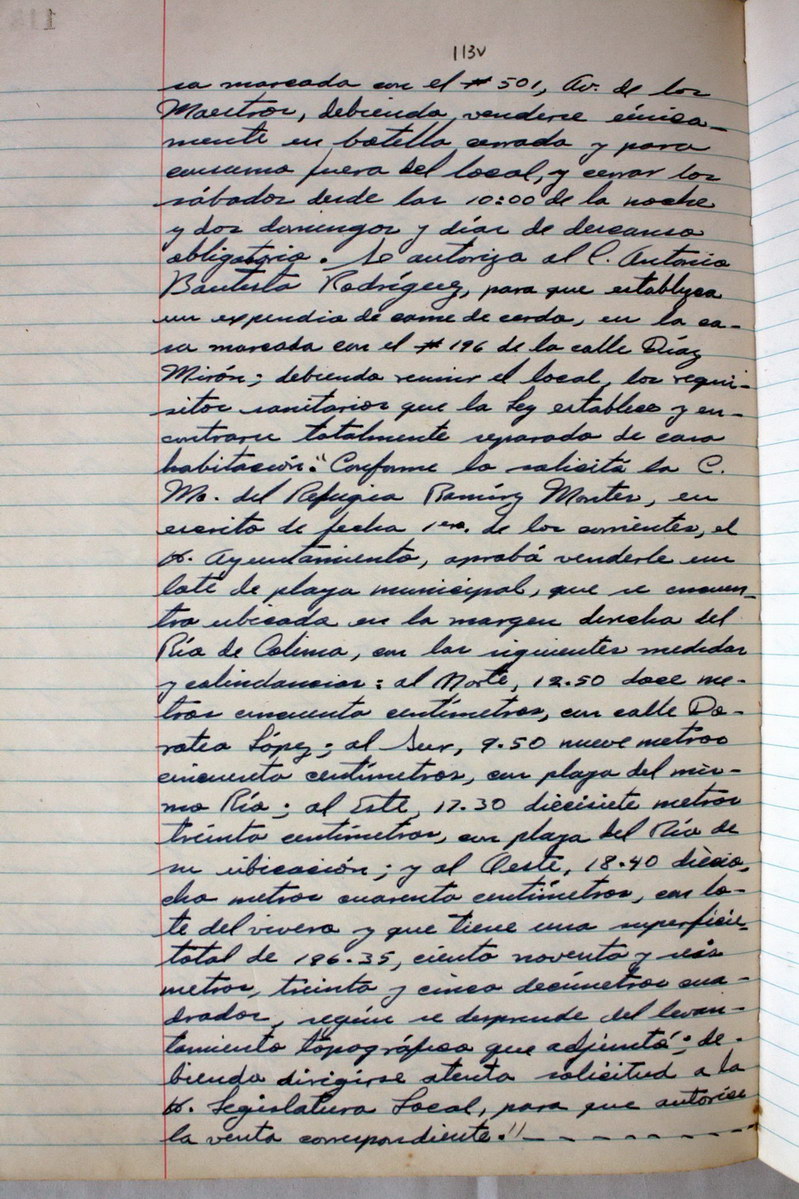 113v
sa marcada con el # 501, Av. de los
Maestros, debiendo venderse única-
mente en botella cerrada y para
consumo fuera del local, y cerrar los
sábados desde las 10:00 de la noche
y dos domingos y días de descanso
obligatorio. Se autoriza al C. Antonio
Bautista Rodríguez, para que establezca
un expendio de carne de cerdo, en la ca-
sa marcada con el # 196 de la calle Díaz
Mirón; debiendo reunir el local, los requi-
sitos sanitarios que la Ley establece y en-
contrarse totalmente separado de casa
habitación." Conforme lo solicita la C.
Ma. del Refugio Ramírez Montes, en
escrito de fecha 1ero. de los corrientes, el
H. Ayuntamiento, aprobó venderle un
lote de playa municipal, que se encuen-
tra ubicada en la margen derecha del
Río de Colima, con las siguientes medidas
y colindancias: al Norte, 12.50 doce me-
tros cincuenta centímetros, con calle Do-
rotea López; al Sur, 9.50 nueve metros
cincuenta centímetros, con playa del mis-
mo Río; al Este, 17.30 diecisiete metros
treinta centímetros, con playa del Río de
su ubicación; y al Oeste, 18.40 diecio-
cho metros cuarenta centímetros, con lo-
te del vivero y que tiene una superficie
total de 196.35, ciento noventa y seis
metros, treinta y cinco decímetros cua-
drados, según se desprende del levan-
tamiento topográfico que adjuntó; de-
biendo dirigirse atenta solicitud a la
H. Legislatura Local, para que autorice
la venta correspondiente."